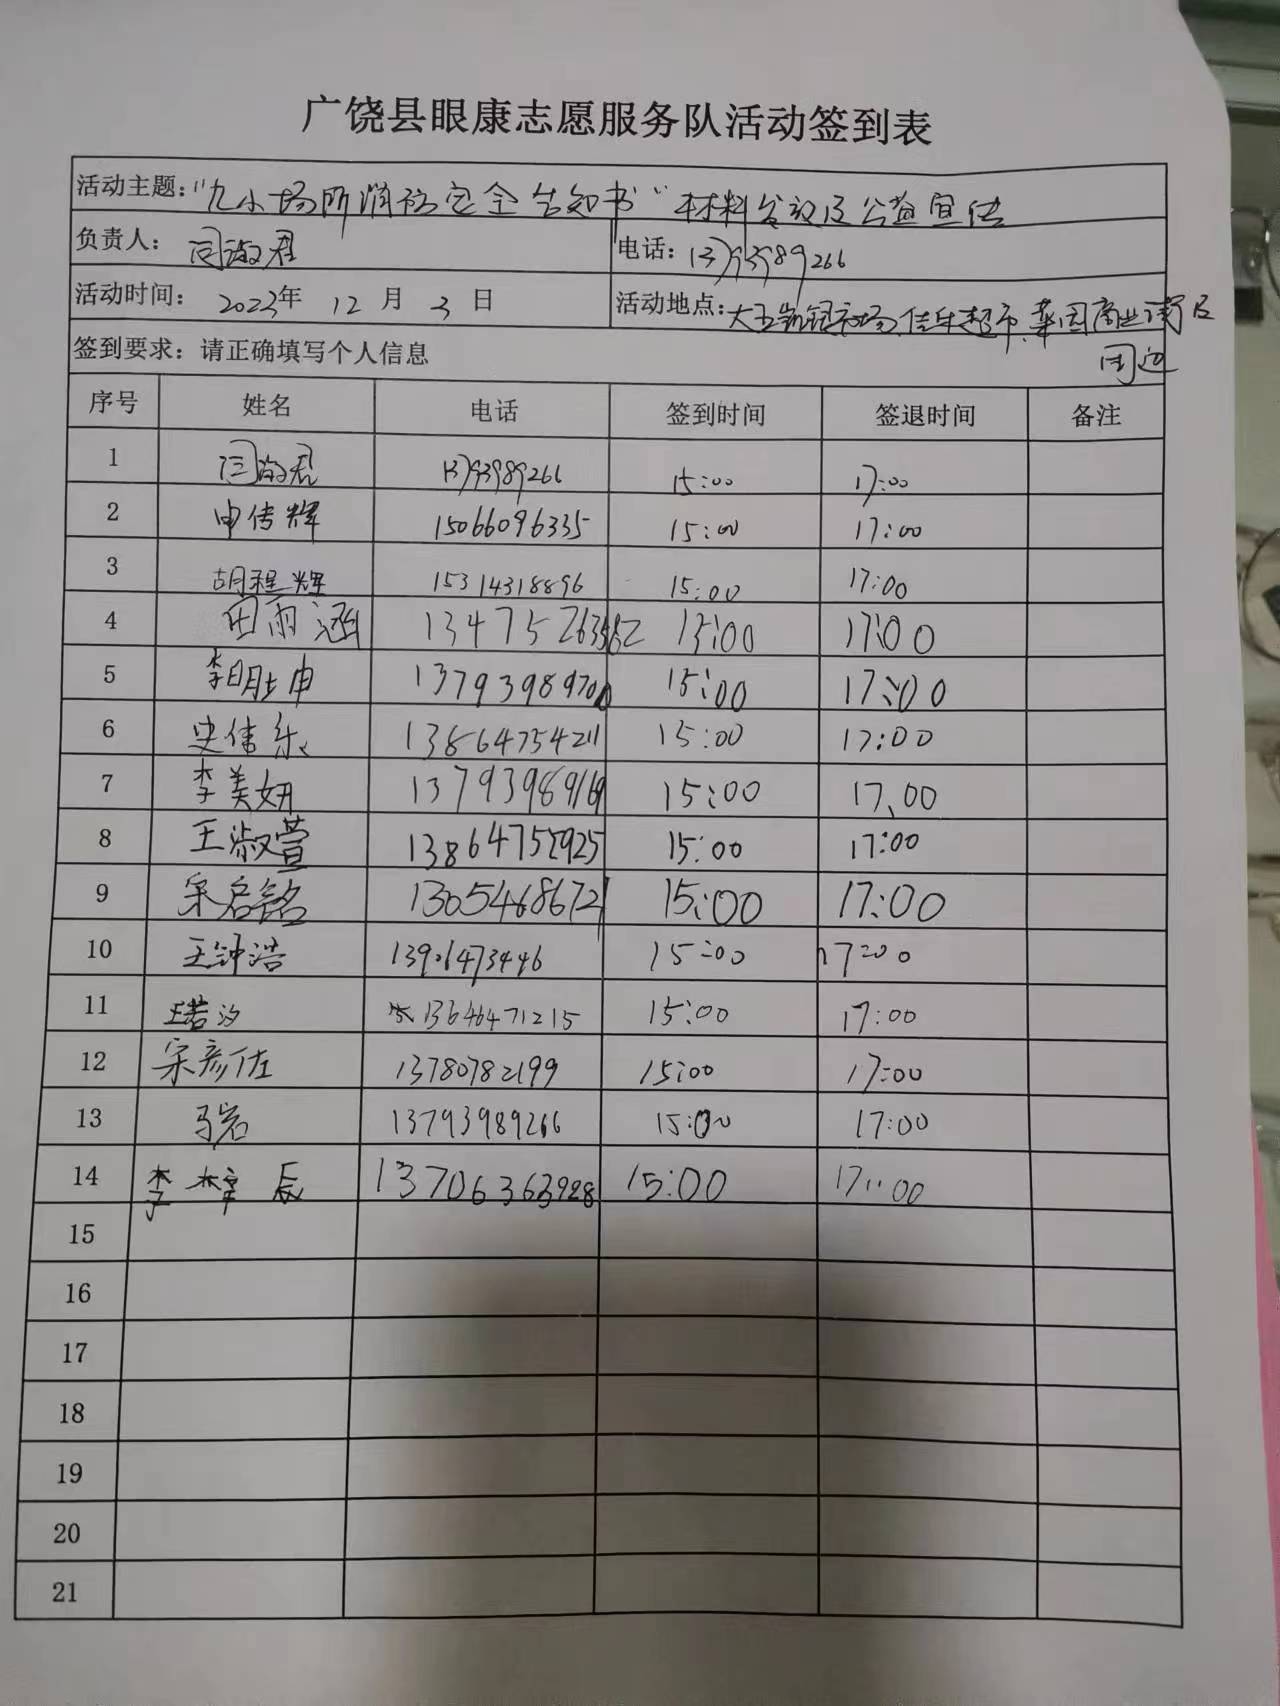 广饶县眼康志愿服务队活动签到表
活动主题："九小场所消防安全告知书"材料分发及公益宣传
负责人：闫淑君 电话：13793989266
活动时间：2023年 12 月 3 日 活动地点：大王 市场、佳乐超市、华园商业街及
周边
签到要求：请正确填写个人信息
序号 姓名 电话 签到时间 签退时间 备注
1 闫淑君 13793989266 15:00 17:00
2 申传辉 15066096335 15:00 17:00
3 胡程辉 15314318896 15:00 17:00
4 田雨涵 15:00 17:00
5 李明胜申 15:00 17:00
6 史佳乐 13864754211 15:00 17:00
7 李美妍 13793989169 15:00 17.00
8 王淑萱 13864752925 15:00 17:00
9 宋启铭 13054686721 15:00 17:00
10 王钟浩 15:00 17:00
11 王若汐 13646471215 15:00 17:00
12 宋彦佐 13780782199 15:00 17:00
13 马岩 13793989266 15:00 17:00
14 李梓辰 13706363928 15:00 17:00
15
16
17
18
19
20
21